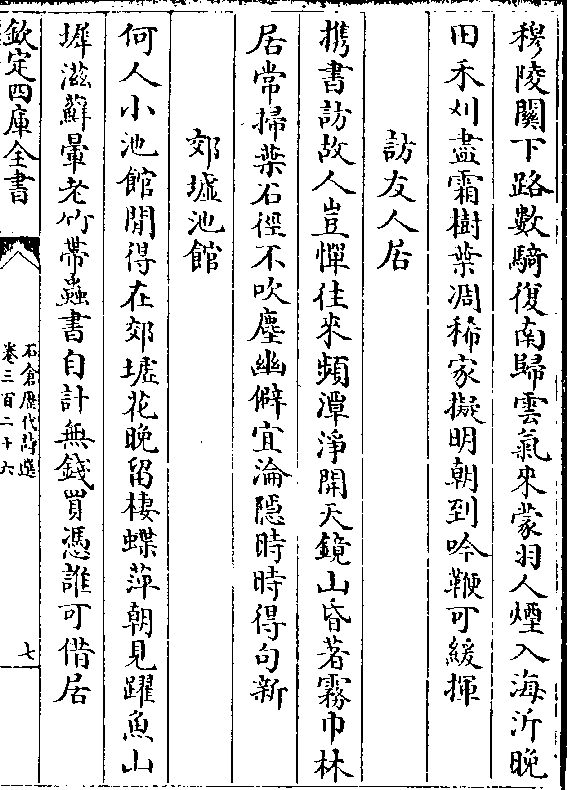 穆陵關下路數騎復南歸雲氣來蒙羽人煙入海沂晚
田禾刈盡霜樹葉凋稀家擬明朝到吟鞭可緩揮
訪友人居
攜書訪故人豈憚往來頻潭淨開天鏡山昏著霧巾林
居常掃葉石徑不吹塵幽僻宜淪隱時時得句新
郊墟池館
何人小池館閒得在郊墟花晚留棲蝶萍朝見躍魚山
墀滋蘚暈老竹帶蟲書自計無錢買憑誰可借居
欽定四庫全書
石倉歷代詩選
卷三百二十六
七